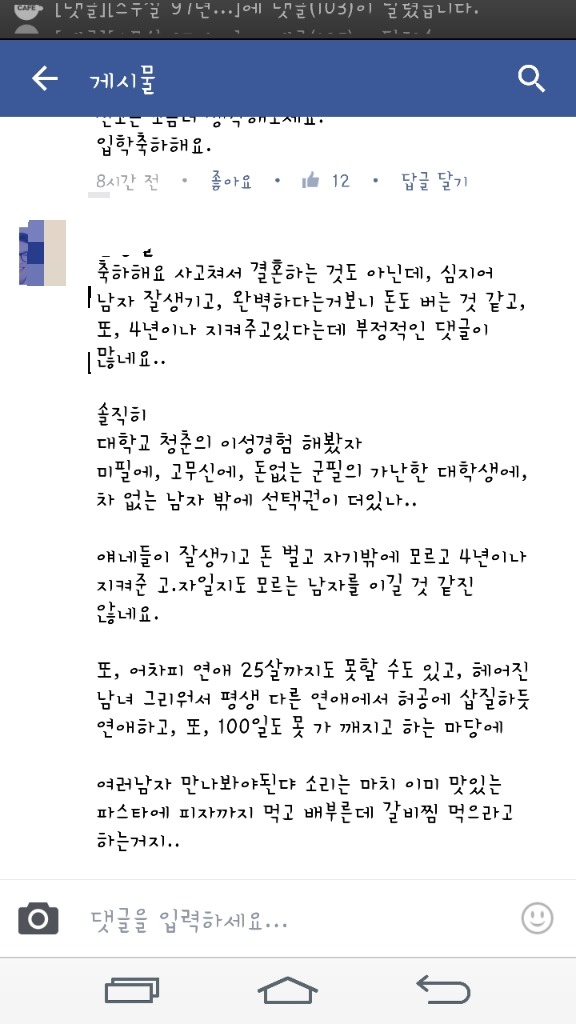 [댓글][스무살 97년...]에 댓글(103)이 달렸습니다.
게시물
입학축하해요.
8시간 전 • 좋아요 • 12 • 답글 달기
축하해요 사고쳐서 결혼하는 것도 아닌데, 심지어
남자 잘생기고, 완벽하다는거보니 돈도 버는 것 같고,
또, 4년이나 지켜주고있다는데 부정적인 댓글이
많네요..
솔직히
대학교 청춘의 이성경험 해봤자
미필에, 고무신에, 돈없는 군필의 가난한 대학생에,
차 없는 남자 밖에 선택권이 더있나..
얘네들이 잘생기고 돈 벌고 자기밖에 모르고 4년이나
지켜준 고.자일지도 모르는 남자를 이길 것 같진
않네요.
또, 어차피 연애 25살까지도 못할 수도 있고, 헤어진
남녀 그리워서 평생 다른 연애에서 허공에 삽질하듯
연애하고, 또, 100일도 못 가 깨지고 하는 마당에
여러남자 만나봐야된댜 소리는 마치 이미 맛있는
파스타에 피자까지 먹고 배부른데 갈비찜 먹으라고
하는거지..
댓글을 입력하세요...